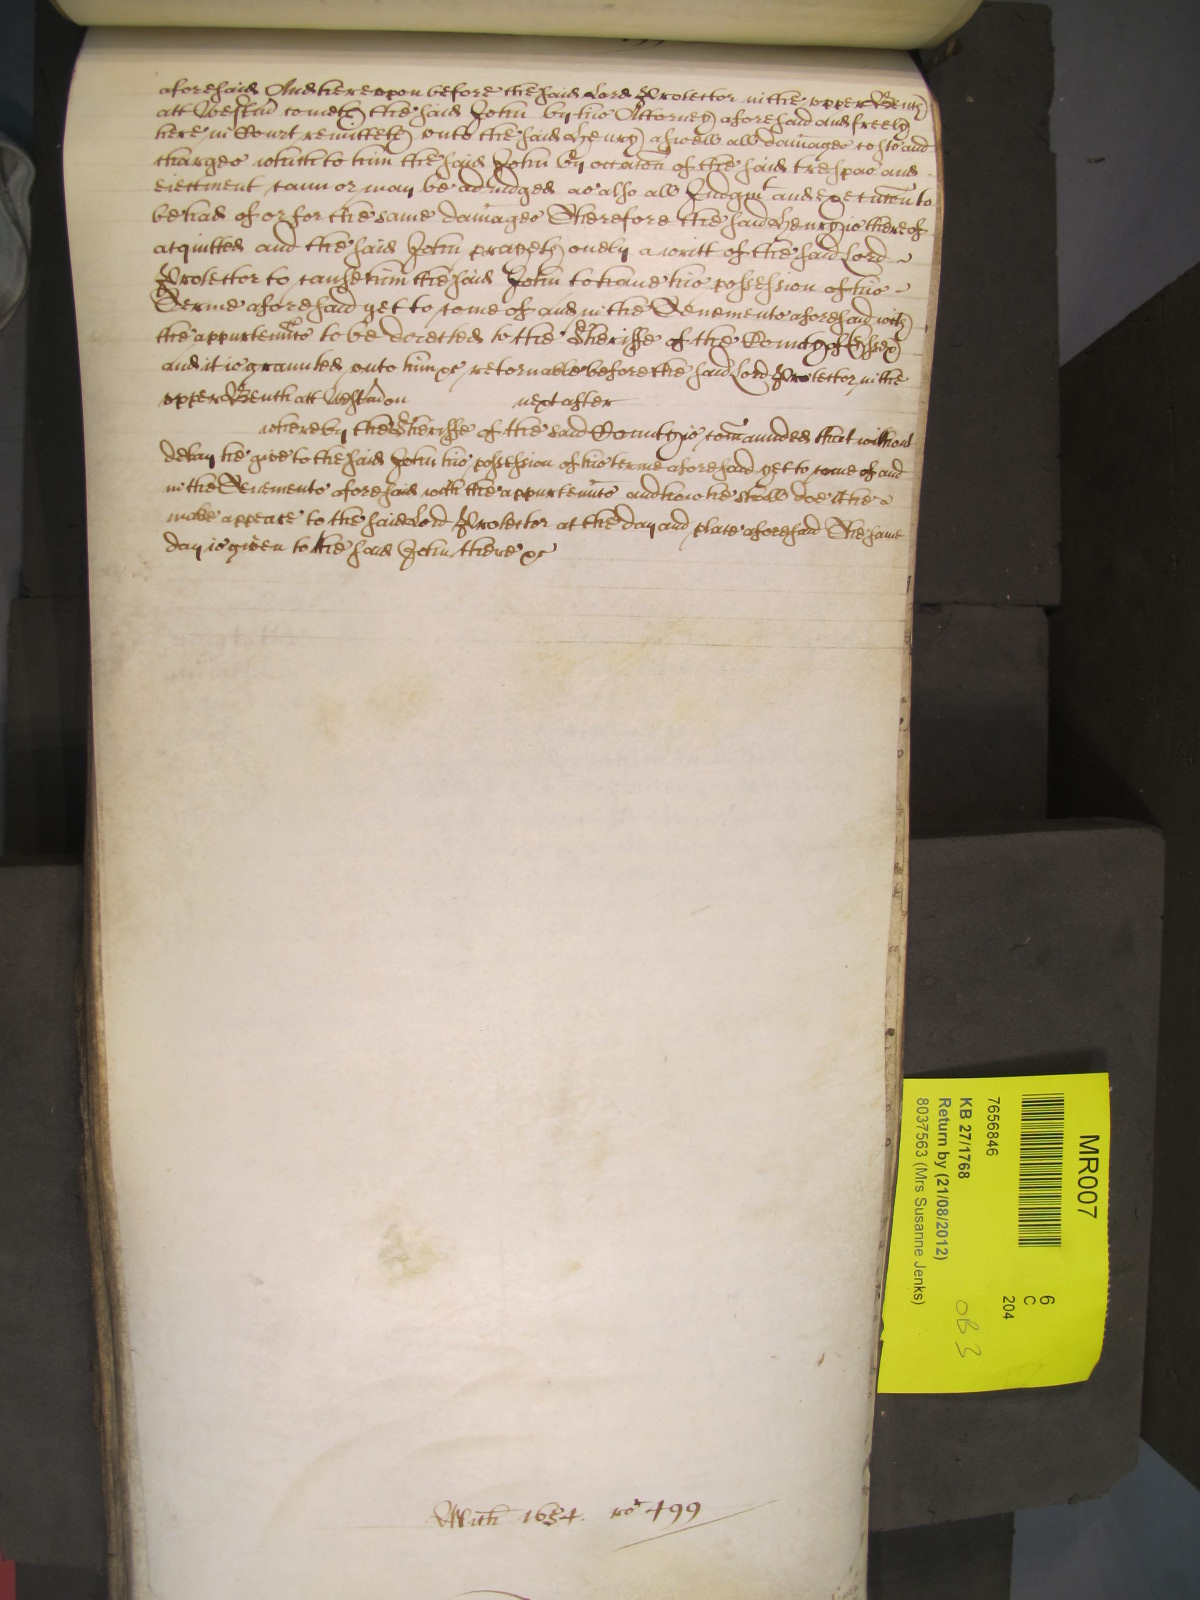 aforesaid And hereupon before the said Lord Protector in the upper Bench
att Westm̃ cometh the said John by his Attorney aforesaid and freely
here in Court remitteth unto the said Henry aswell all damages costs and
charges which to him the said John by occac̃on of the said trespas and
eiectment cann or may be adiudged as also all Judgmt and execuc̃on to
be had of or for the same damages Therefore the said Henry is thereof
acquitted and the said John prayeth onely a writt of the said Lord
Protector to cause him the said John to haue his possession of his
Terme aforesaid yet to come of and in the Tenements aforesaid with
the appurtennc̃s to be directed to the Sheriffe of the County of Essex
and it is graunted unto him &c returnable before the said Lord Protector in the
upper Bench att Westm̃ on next after
whereby the Sheriffe of the said County is com̃aunded that without
delay he give to the said John his possession of his terme aforesaid yet to come of and
in the Tenements aforesaid with the appurtennc̃s and how he shall doe the
make appeare to the said Lord Protector at the day and place aforesaid The same
day is given to the said John there &c
Mich 1654. ro 499
MR007
7656846
KB 27/1768
Return by (21/08/2012)
8037563 (Mrs Susanne Jenks)
6
C
204
OB 3